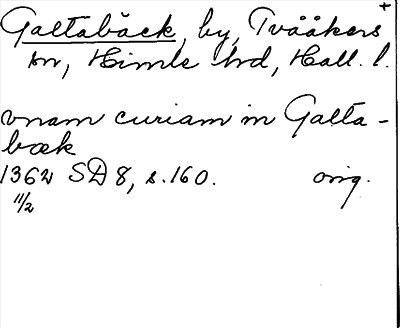 Galtabäck, by, Tvååkers +
sn, Himle hd, Hall. l.
vnam curiam in Galta-
bæk
1362 SD 8, s. 160. orig.
11/2